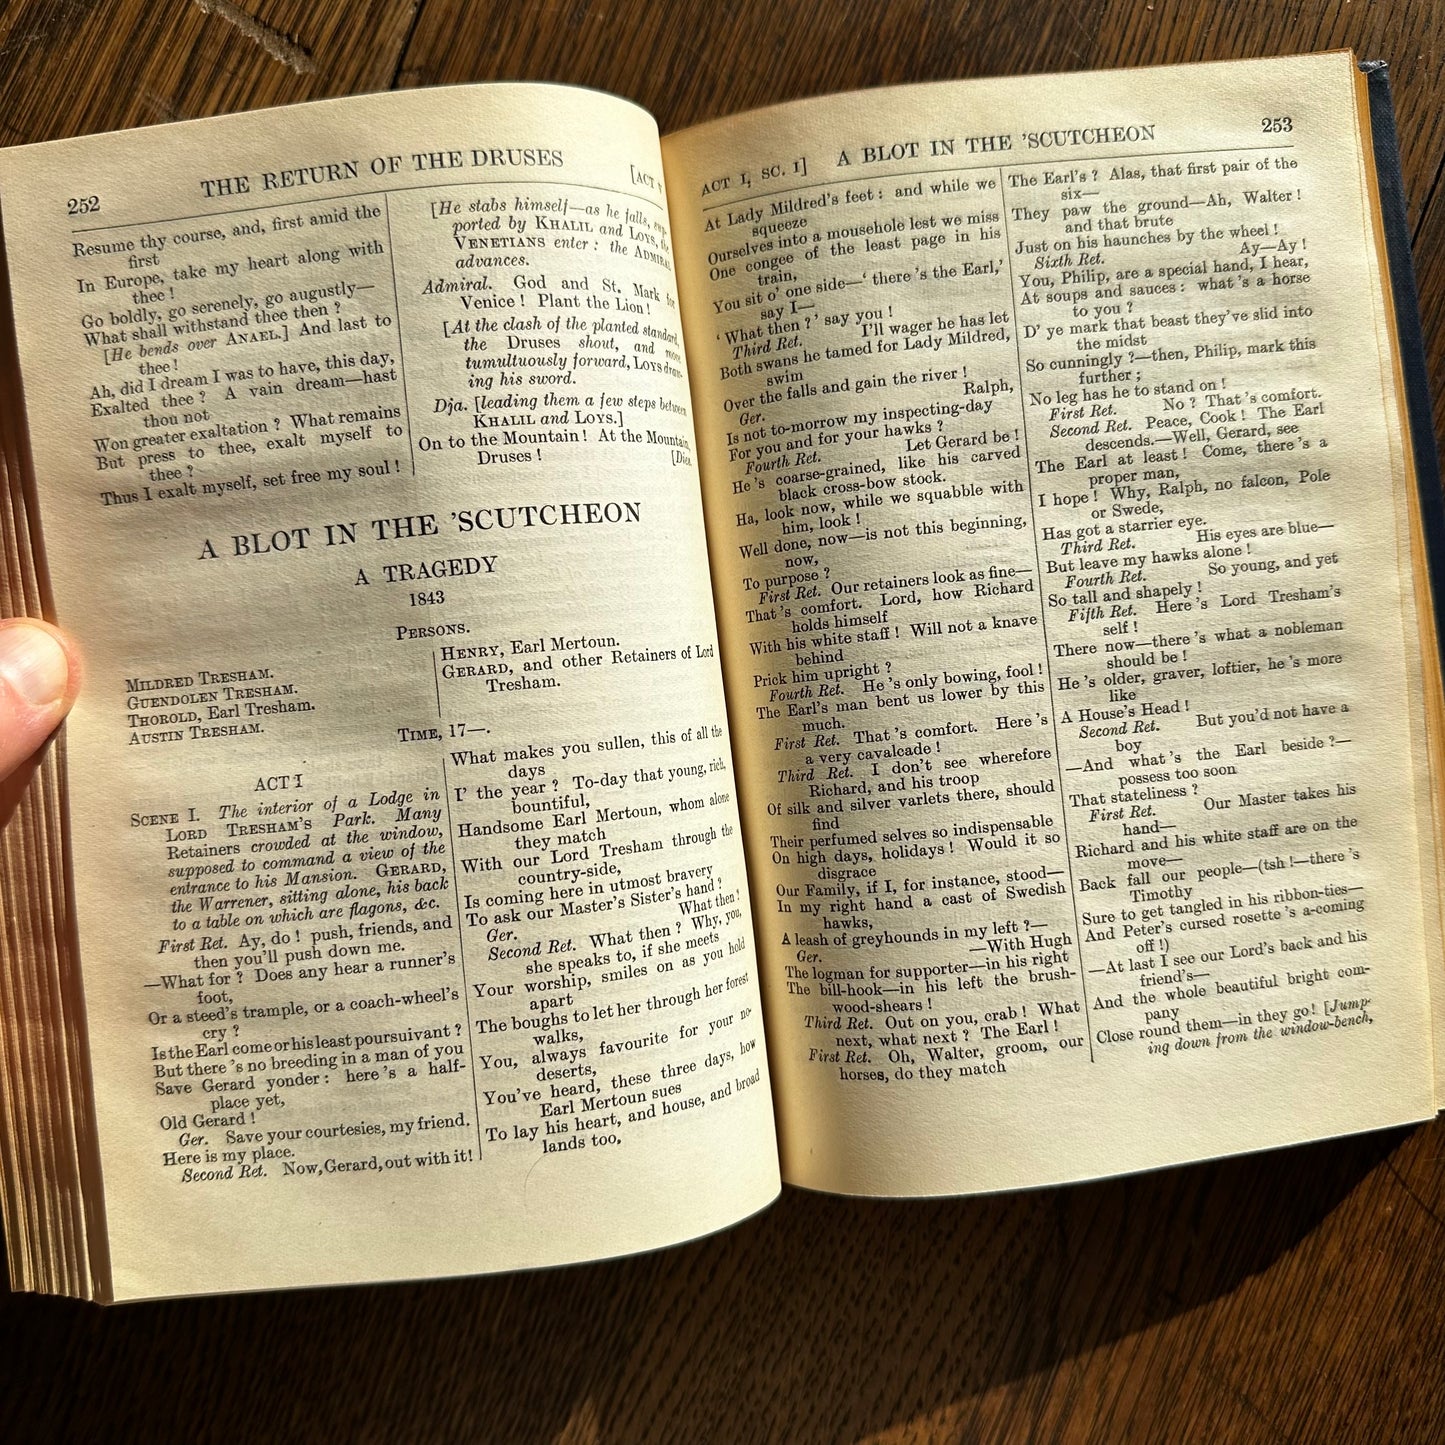 252
THE RETURN OF THE DRUSES
[ACT V
Resume thy course, and, first amid the
first
In Europe, take my heart along with
thee !
Go boldly, go serenely, go augustly—
What shall withstand thee then ?
[He bends over ANAEL.] And last to
thee !
Ah, did I dream I was to have, this day,
Exalted thee ? A vain dream—hast
thou not
Won greater exaltation ? What remains
But press to thee, exalt myself to
thee ?
Thus I exalt myself, set free my soul !
[He stabs himself—as he falls, sup-
ported by KHALIL and LOYS, the
VENETIANS enter : the ADMIRAL
advances.
Admiral. God and St. Mark for
Venice ! Plant the Lion !
[At the clash of the planted standard,
the Druses shout, and move
tumultuously forward, LOYS draw-
ing his sword.
Dja. [leading them a few steps between
KHALIL and LOYS.]
On to the Mountain ! At the Mountain,
Druses !
[Dies.
A BLOT IN THE 'SCUTCHEON
A TRAGEDY
1843
PERSONS.
MILDRED TRESHAM.
GUENDOLEN TRESHAM.
THOROLD, Earl Tresham.
AUSTIN TRESHAM.
HENRY, Earl Mertoun.
GERARD, and other Retainers of Lord
Tresham.
TIME, 17—.
ACT I
SCENE I. The interior of a Lodge in
LORD TRESHAM'S Park. Many
Retainers crowded at the window,
supposed to command a view of the
entrance to his Mansion. GERARD,
the Warrener, sitting alone, his back
to a table on which are flagons, &c.
First Ret. Ay, do ! push, friends, and
then you'll push down me.
—What for ? Does any hear a runner's
foot,
Or a steed's trample, or a coach-wheel's
cry ?
Is the Earl come or his least poursuivant ?
But there 's no breeding in a man of you
Save Gerard yonder : here 's a half-
place yet,
Old Gerard !
Ger. Save your courtesies, my friend.
Here is my place.
Second Ret. Now, Gerard, out with it !
What makes you sullen, this of all the
days
I' the year ? To-day that young, rich,
bountiful,
Handsome Earl Mertoun, whom alone
they match
With our Lord Tresham through the
country-side,
Is coming here in utmost bravery
To ask our Master's Sister's hand ?
Ger. What then !
Second Ret. What then ? Why, you,
she speaks to, if she meets
Your worship, smiles on as you hold
apart
The boughs to let her through her forest
walks,
You, always favourite for your no-
deserts,
You've heard, these three days, how
Earl Mertoun sues
To lay his heart, and house, and broad
lands too,
ACT I, SC. I]
A BLOT IN THE 'SCUTCHEON
253
At Lady Mildred's feet : and while we
squeeze
Ourselves into a mousehole lest we miss
One congee of the least page in his
train,
You sit o' one side—' there 's the Earl,'
say I—
' What then ? ' say you !
Third Ret. I'll wager he has let
Both swans he tamed for Lady Mildred,
swim
Over the falls and gain the river !
Ger. Ralph,
Is not to-morrow my inspecting-day
For you and for your hawks ?
Fourth Ret. Let Gerard be !
He 's coarse-grained, like his carved
black cross-bow stock.
Ha, look now, while we squabble with
him, look !
Well done, now—is not this beginning,
now,
To purpose ?
First Ret. Our retainers look as fine—
That 's comfort. Lord, how Richard
holds himself
With his white staff ! Will not a knave
behind
Prick him upright ?
Fourth Ret. He 's only bowing, fool !
The Earl's man bent us lower by this
much.
First Ret. That 's comfort. Here 's
a very cavalcade !
Third Ret. I don't see wherefore
Richard, and his troop
Of silk and silver varlets there, should
find
Their perfumed selves so indispensable
On high days, holidays ! Would it so
disgrace
Our Family, if I, for instance, stood—
In my right hand a cast of Swedish
hawks,
A leash of greyhounds in my left ?—
Ger. —With Hugh
The logman for supporter—in his right
The bill-hook—in his left the brush-
wood-shears !
Third Ret. Out on you, crab ! What
next, what next ? The Earl !
First Ret. Oh, Walter, groom, our
horses, do they match
The Earl's ? Alas, that first pair of the
six—
They paw the ground—Ah, Walter !
and that brute
Just on his haunches by the wheel !
Sixth Ret. Ay—Ay !
You, Philip, are a special hand, I hear,
At soups and sauces : what 's a horse
to you ?
D' ye mark that beast they've slid into
the midst
So cunningly ?—then, Philip, mark this
further ;
No leg has he to stand on !
First Ret. No ? That 's comfort.
Second Ret. Peace, Cook ! The Earl
descends.—Well, Gerard, see
The Earl at least ! Come, there 's a
proper man,
I hope ! Why, Ralph, no falcon, Pole
or Swede,
Has got a starrier eye.
Third Ret. His eyes are blue—
But leave my hawks alone !
Fourth Ret. So young, and yet
So tall and shapely !
Fifth Ret. Here 's Lord Tresham's
self !
There now—there 's what a nobleman
should be !
He 's older, graver, loftier, he 's more
like
A House's Head !
Second Ret. But you'd not have a
boy
—And what 's the Earl beside ?—
possess too soon
That stateliness ?
First Ret. Our Master takes his
hand—
Richard and his white staff are on the
move—
Back fall our people—(tsh !—there 's
Timothy
Sure to get tangled in his ribbon-ties—
And Peter's cursed rosette 's a-coming
off !)
—At last I see our Lord's back and his
friend's—
And the whole beautiful bright com-
pany
Close round them—in they go ! [Jump-
ing down from the window-bench,